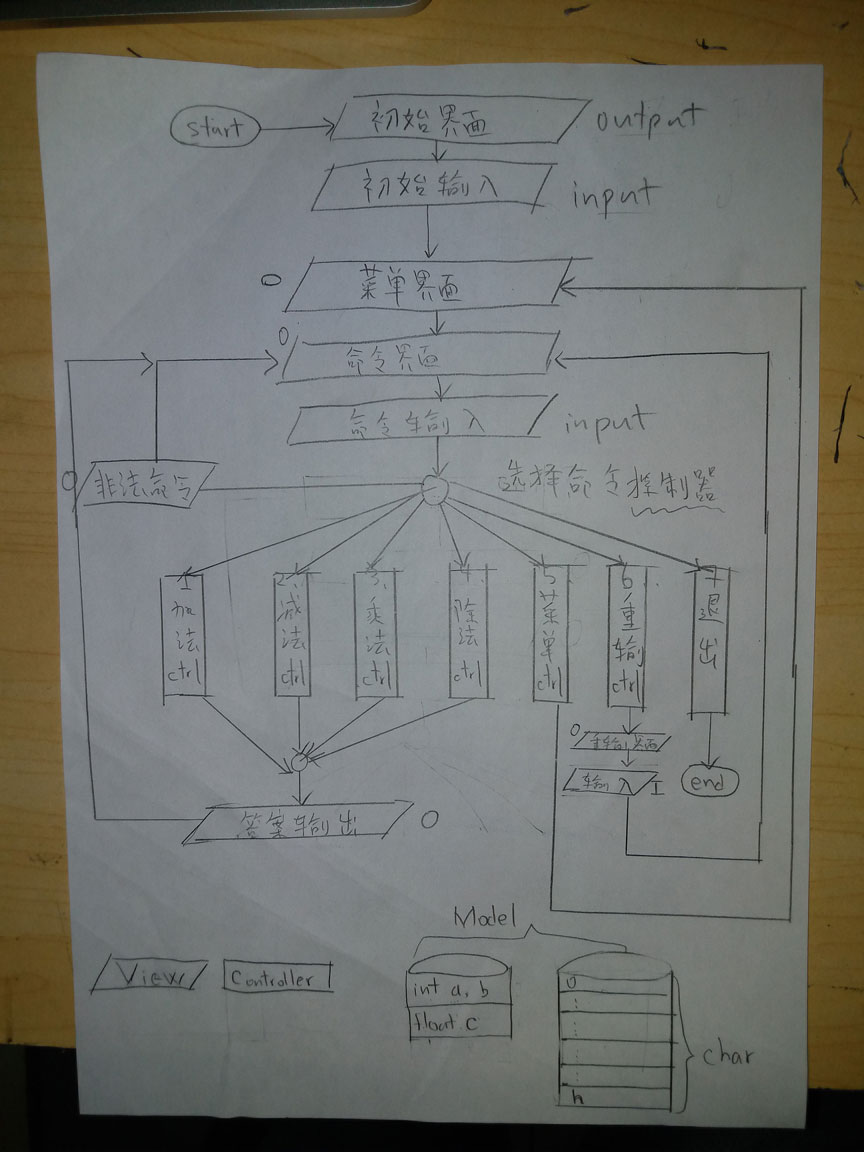 start
初始界面
output
初始输入
input
O
菜单界面
O
命令界面
命令输入
input
O
非法命令
选择命令控制器
1
加法
ctrl
2、
减法
ctrl
3、
乘法
ctrl
4、
除法
ctrl
5
菜单
ctrl
6、
重输
ctrl
7
退出
O
重输界面
输入
I
end
答案输出
O
Model
View
Controller
int a, b
float c
0
:
:
:
n
char